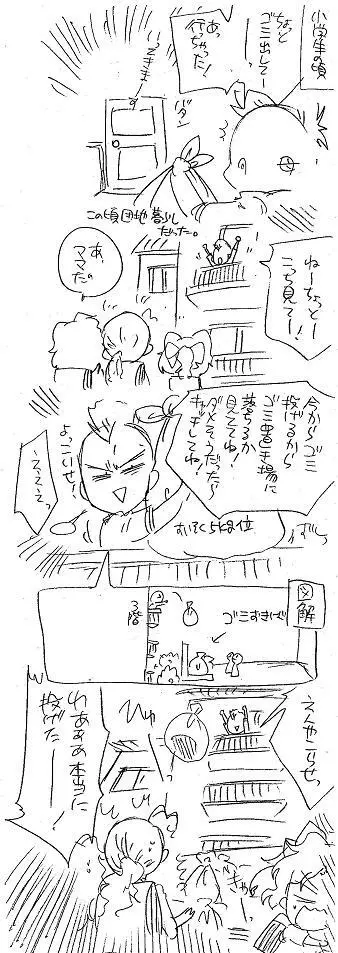 小学生の頃
ちょっと
ゴミ出してー
あっ
行っちゃった!
バターン
いってきまーす
この頃団地暮らし
だった。
ねーちょっとー
こっち見てー!
あ
ママ
だ。
今からゴミ
投げるから
ゴミ置き場に
落ちるか
見ててね!
ダメそうだったら
キャッチしてね!
よっこいせ!
えええっ
図解
ゴミおきば
3階
えんやこらせっ
ひゅー
わあああ本当に
投げた!
きゃー